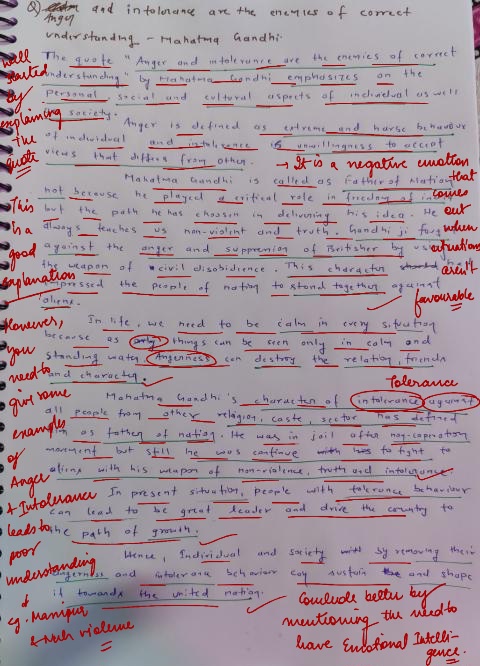 Q) Anger and intolerance are the enemies of correct
understanding - Mahatma Gandhi.
Well started by explaining the quote
The quote "Anger and intolerance are the enemies of correct
understanding" by Mahatma Gandhi emphasizes on the
personal, social and cultural aspects of individual as well
society.
Anger is defined as extreme and harse behaviour
of individual and intolerence is unwillingness to accept
views that differs from other.
→ It is a negative emotion that comes out when situations aren't favourable
Mahatma Gandhi is called as Father of Nation
not because he played a critical role in freedom of
but the path he has choosen in delivering his idea. He
always teaches us non-violent and truth. Gandhi ji
against the anger and suppression of Britisher by
the weapon of civil disobidience. This character
impressed the people of nation to stand together against
aliens.
This is a good explanation
In life, we need to be calm in every situation
because as only things can be seen only in calm and
standing water. Angerness can destroy the relation, friends
and character.
However, you need to give some examples of Anger & Intolerance leads to poor understanding
eg. Manipur & Nuh violence
Tolerance
Mahatma Gandhi's character of intolerance against
all people from other religion, caste, sector has defined
him as father of nation. He was in jail after non-coperation
movement but still he was continue to fight to
aliens with his weapon of non-violence, truth and intolerance.
In present situation, people with tolerance behaviour
can lead to be great leader and drive the country to
the path of growth.
Hence, Individual and society by removing their
angerness and intolerance behavior can sustain and shape
it towards the united nation.
Conclude better by
mentioning the need to
have Emotional Intelli-
gence.